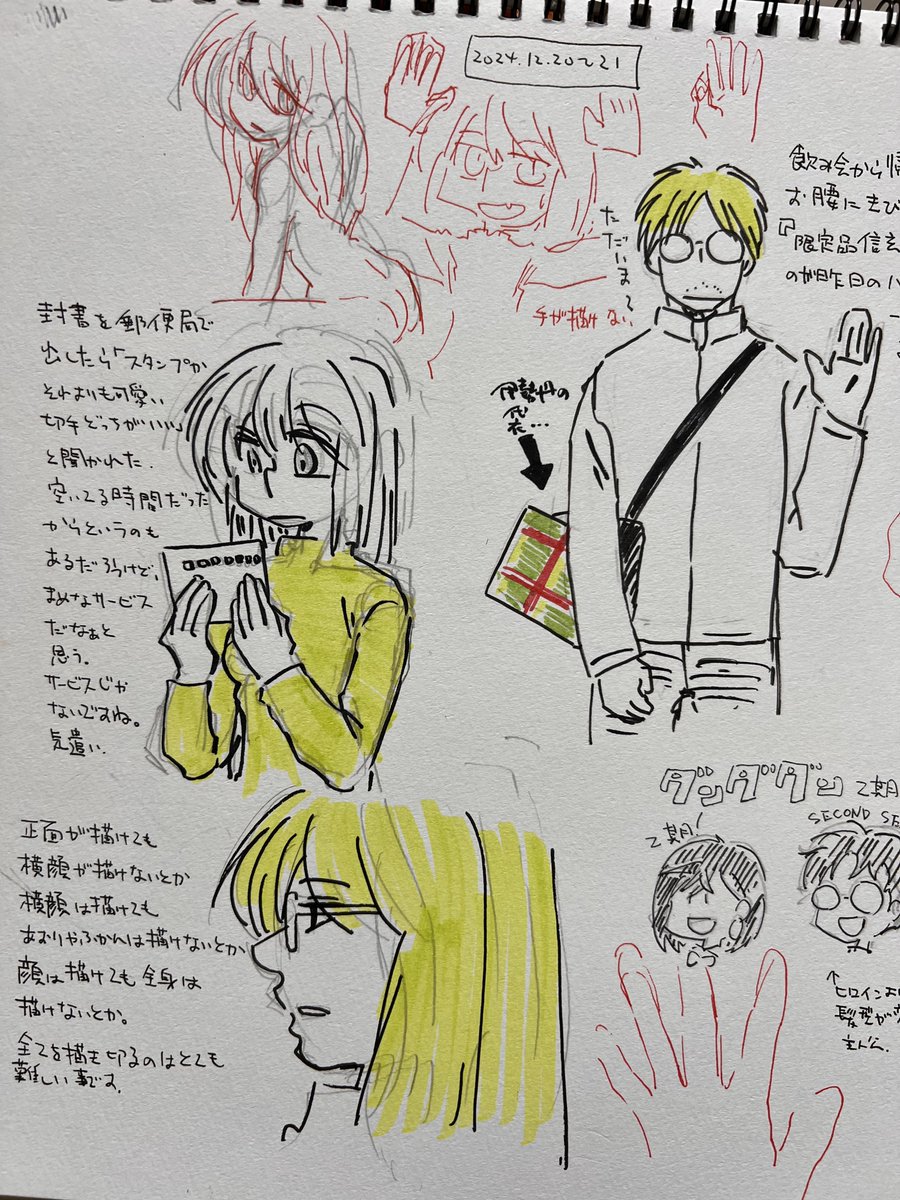 2024.12.20〜21
飲み会から帰
お腰に
『限定品信玄
のが昨日のハ
ただいまー
手が描けない
袋…
封書を郵便局で
出したら「スタンプか
それよりも可愛い
切手どっちがいい」
と聞かれた.
空いてる時間だった
からというのも
あるだろうけど、
まめなサービス
だなぁと
思う。
サービスじゃ
ないですね。
気遣い.
正面が描けても
横顔が描けないとか
横顔は描けても
あおりやふかんは描けないとか
顔は描けても全身は
描けないとか。
全てを描き切るのはとても
難しい事です.
ダンダダン 2期
SECOND SE
2期!
↑
ヒロインより
髪型が